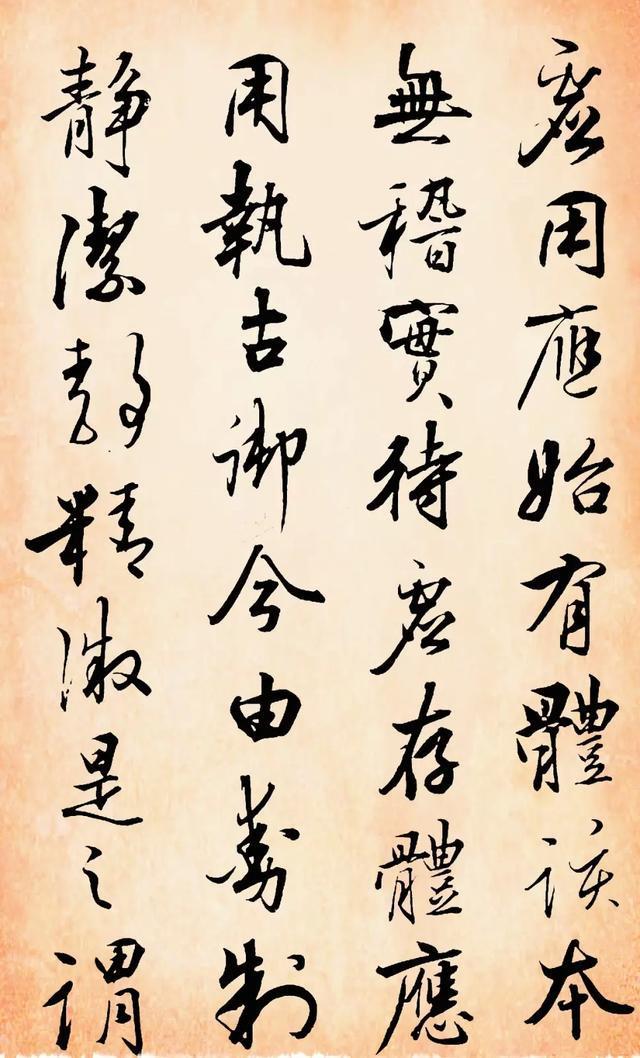 虛用應始有體該本
無稽實待虛存體應
用執古御今由動制
靜潔靜精微是之謂